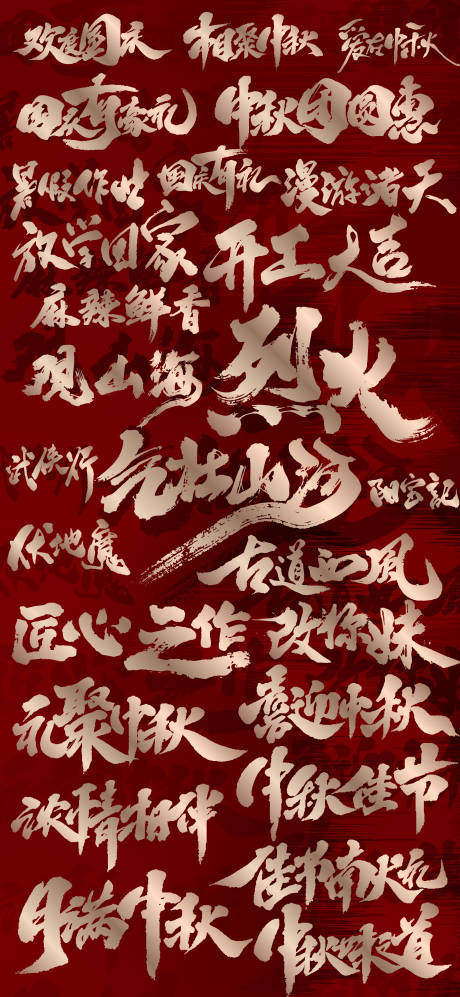 欢度国庆 相聚中秋 爱在中秋
国庆有家礼 中秋团圆惠
暑假作业 国庆有礼 漫游诸天
放学回家 开工大吉
麻辣鲜香
观山海 烈火
武侠行 气壮山河
伏地魔 古道西風
匠心之作 改你妹
礼聚中秋 喜迎中秋
浓情相伴 中秋佳节
月满中秋 中秋味之道